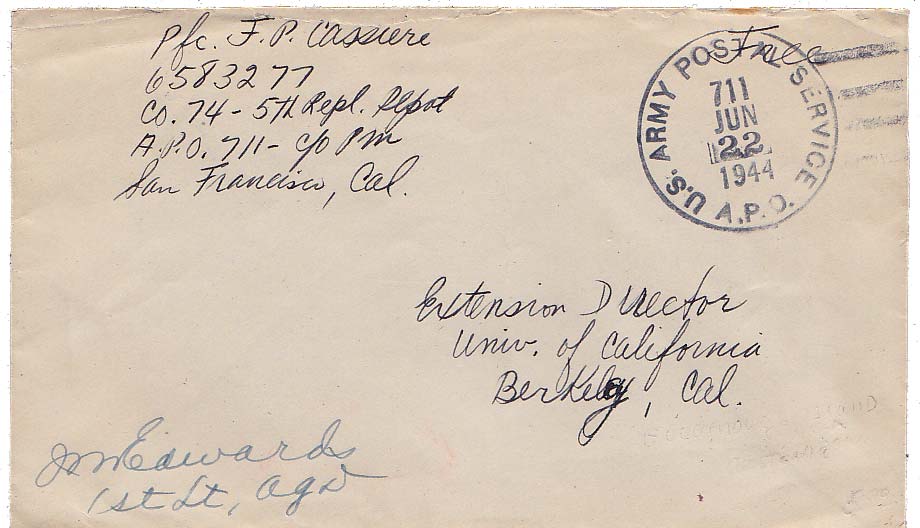 Pfc. F. P. Cassiere
6583277
Co. 74 - 5th Repl. Depot
A.P.O. 711 - c/o PM
San Francisco, Cal.
Free
U.S. ARMY POSTAL SERVICE
711
JUN
22
1944
A.P.O.
Extension Director
Univ. of California
Berkeley, Cal.
Edwards
1st Lt, AGD